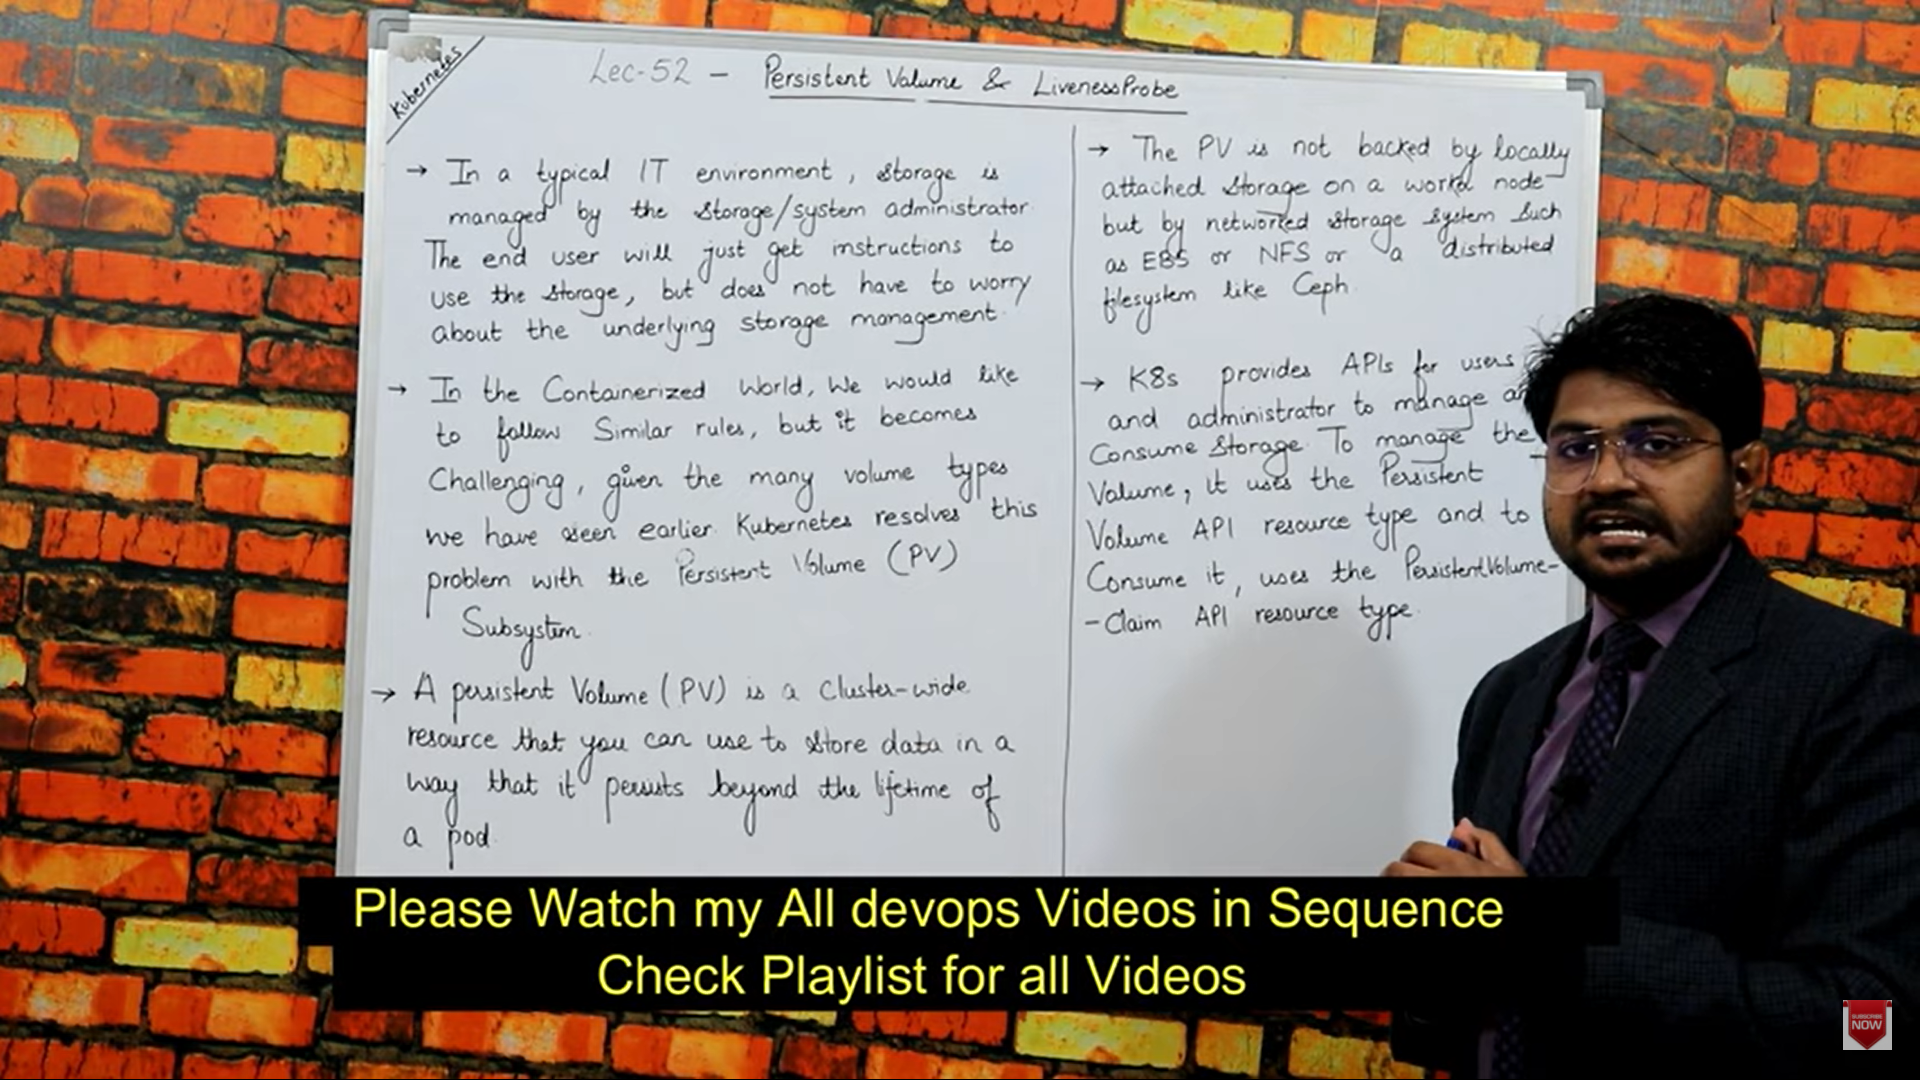 Kubernetes
Lec-52 - Persistent Volume & LivenessProbe
→ In a typical IT environment, storage is
managed by the storage/system administrator
The end user will just get instructions to
use the storage, but does not have to worry
about the underlying storage management.
→ In the Containerized World, We would like
to follow Similar rules, but it becomes
Challenging, given the many volume types
we have seen earlier. Kubernetes resolves this
problem with the Persistent Volume (PV)
Subsystem.
→ A persistent Volume (PV) is a cluster-wide
resource that you can use to store data in a
way that it persists beyond the lifetime of
a pod.
→ The PV is not backed by locally
attached storage on a node
but by networked storage system such
as EBS or NFS or a distributed
filesystem like Ceph.
→ K8s provides APIs for users
and administrator to manage
Consume Storage. To manage the
Volume, it uses the Persistent
Volume API resource type and to
Consume it, uses the PersistentVolume-
-Claim API resource type.
Please Watch my All devops Videos in Sequence
Check Playlist for all Videos
SUBSCRIBE
NOW